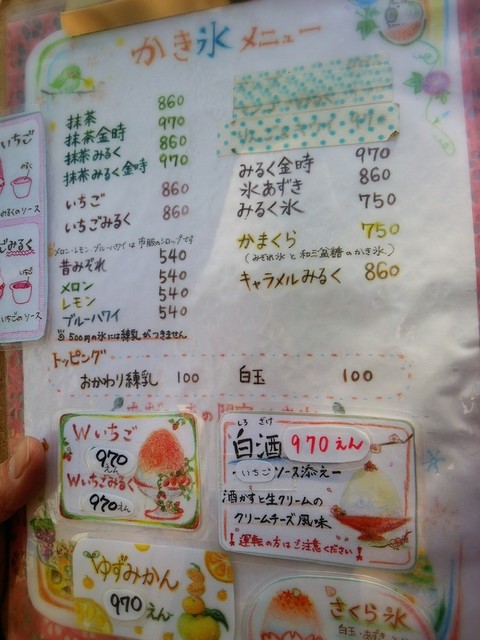 かき氷 メニュー
抹茶 860
抹茶金時 970
抹茶みるく 860
抹茶みるく金時 970
いちご 860
いちごみるく 860
メロン・レモン・ブルーハワイは市販のシロップです
昔みぞれ 540
メロン 540
レモン 540
ブルーハワイ 540
500円の氷には練乳がつきません
みるく金時 970
氷あずき 860
みるく氷 750
かまくら 750
(みぞれ氷と和三盆糖のかき氷)
キャラメルみるく 860
トッピング
おかわり練乳 100 白玉 100
Wいちご
970えん
Wいちごみるく
970えん
しろ ざけ
白酒 970えん
・いちごソース添えー
酒かすと生クリームの
クリームチーズ風味
!運転の方はご注意ください!
ゆずみかん
970えん
さくら氷
白玉・あずき
いちご
みるくのソース
みるく
いちごのソース